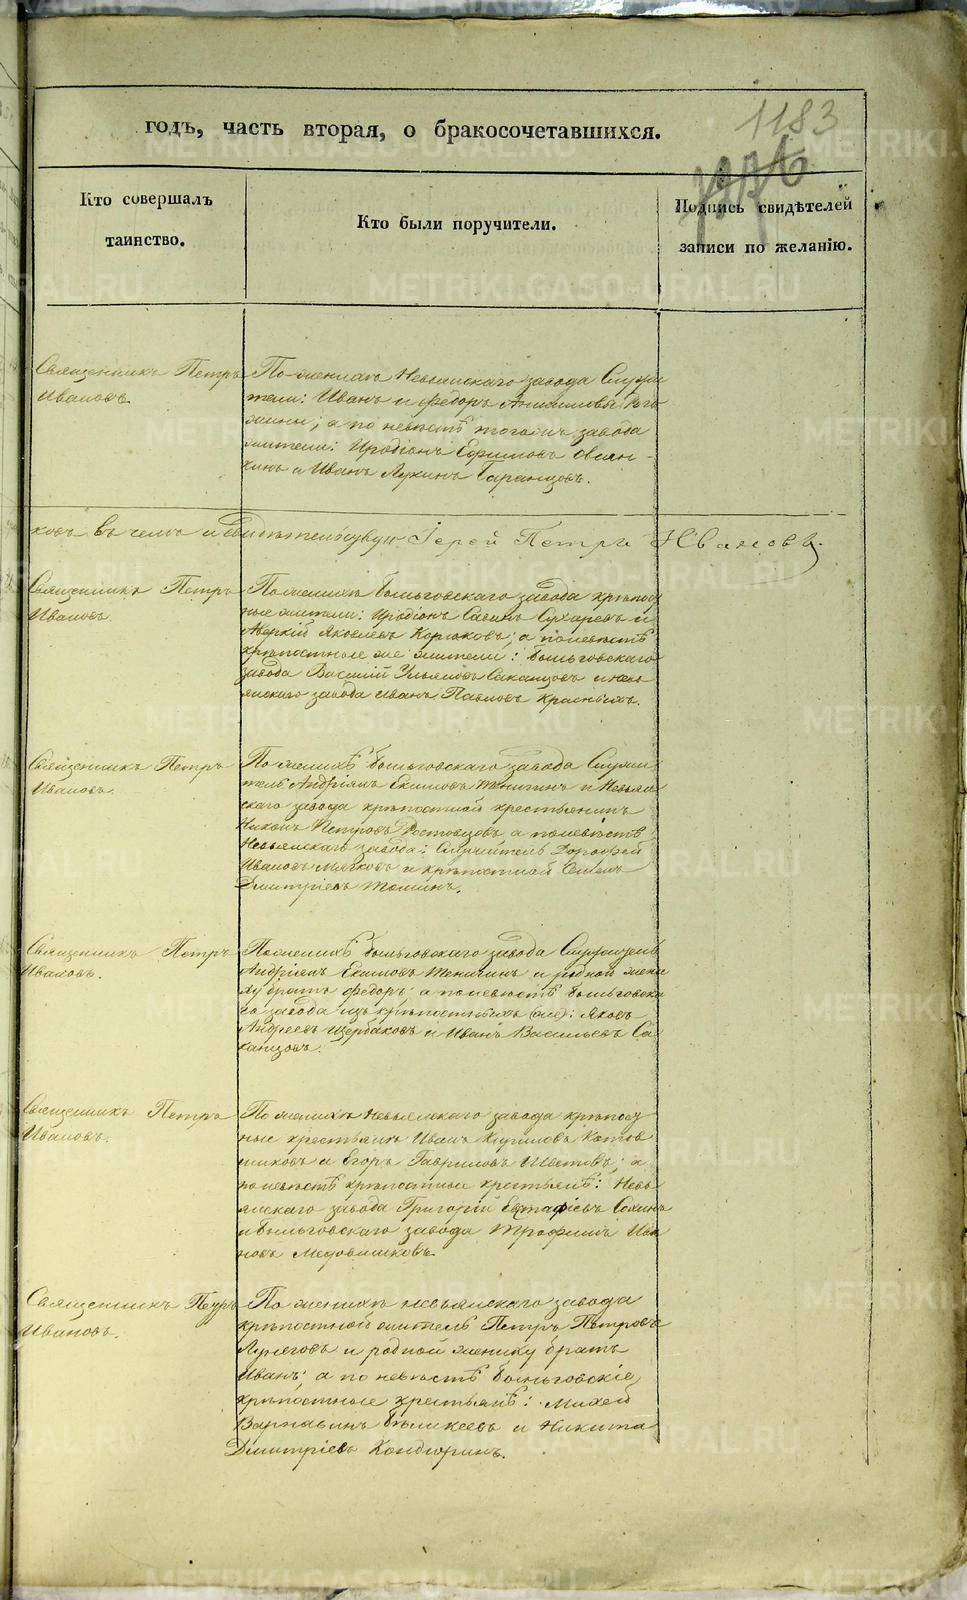 1183
годъ, часть вторая, о бракосочетавшихся.
Кто совершалъ
таинство.
Кто были поручители.
Подпись свидѣтелей
записи по желанію.
Священникъ Петръ
Ивановъ.
По женихѣ Невьянскаго завода Служи
тели: Иванъ и Ѳедоръ
а по невѣстѣ тогожъ завода
жители: Иродіонъ Ефимовъ Овчин-
кинъ и Иванъ Лукинъ Баранцовъ.
ковъ въ чемъ и свидѣтельствую Іерей Петръ Ивановъ.
Священникъ Петръ
Ивановъ.
По женихѣ Быньговскаго завода крѣпост
ные жители: Иродіонъ Савинъ Сухаревъ и
Аверкій Яковлевъ Корюковъ; а по невѣстѣ
крѣпостные же жители: Быньговскаго
завода Василій Ульяновъ Саканцовъ и невь
янскаго завода Иванъ Павловъ Красныхъ.
Священникъ Петръ
Ивановъ.
По женихѣ Быньговскаго завода Служи
тель Андріянъ Екимовъ и Невьян
скаго завода крѣпостной крестьянинъ
Никонъ Петровъ Ростовцовъ а по невѣстѣ
Невьянскаго завода: Служитель Дорофей
Ивановъ Мягковъ и крѣпостной Семенъ
Дмитріевъ
Священникъ Петръ
Ивановъ.
По женихѣ Быньговскаго завода Служитель
Андріянъ Екимовъ и родной жени
ху братъ Ѳедоръ; а по невѣстѣ Быньговска
го завода изъ крѣпостныхъ Яковъ
Андреевъ Щербаковъ и Иванъ Васильевъ Са
канцовъ.
Священникъ Петръ
Ивановъ.
По женихѣ Невьянскаго завода крѣпост
ные крестьяне Иванъ Кириловъ Котов
щиковъ и Егоръ Гавриловъ а
по невѣстѣ крѣпостные крестьяне: Невь
янскаго завода Григорій
и Быньговскаго завода Трофимъ Ива
новъ Медовщиковъ.
Священникъ Петръ
Ивановъ.
По женихѣ невьянскаго завода
крѣпостной житель Петръ Петровъ
Лунеговъ и родной жениху братъ
Иванъ; а по невѣстѣ Быньговскіе
крѣпостные крестьяне: Михей
Варнавинъ и Никита
Дмитріевъ Кондюринъ.
METRIKI.GASO-URAL.RU